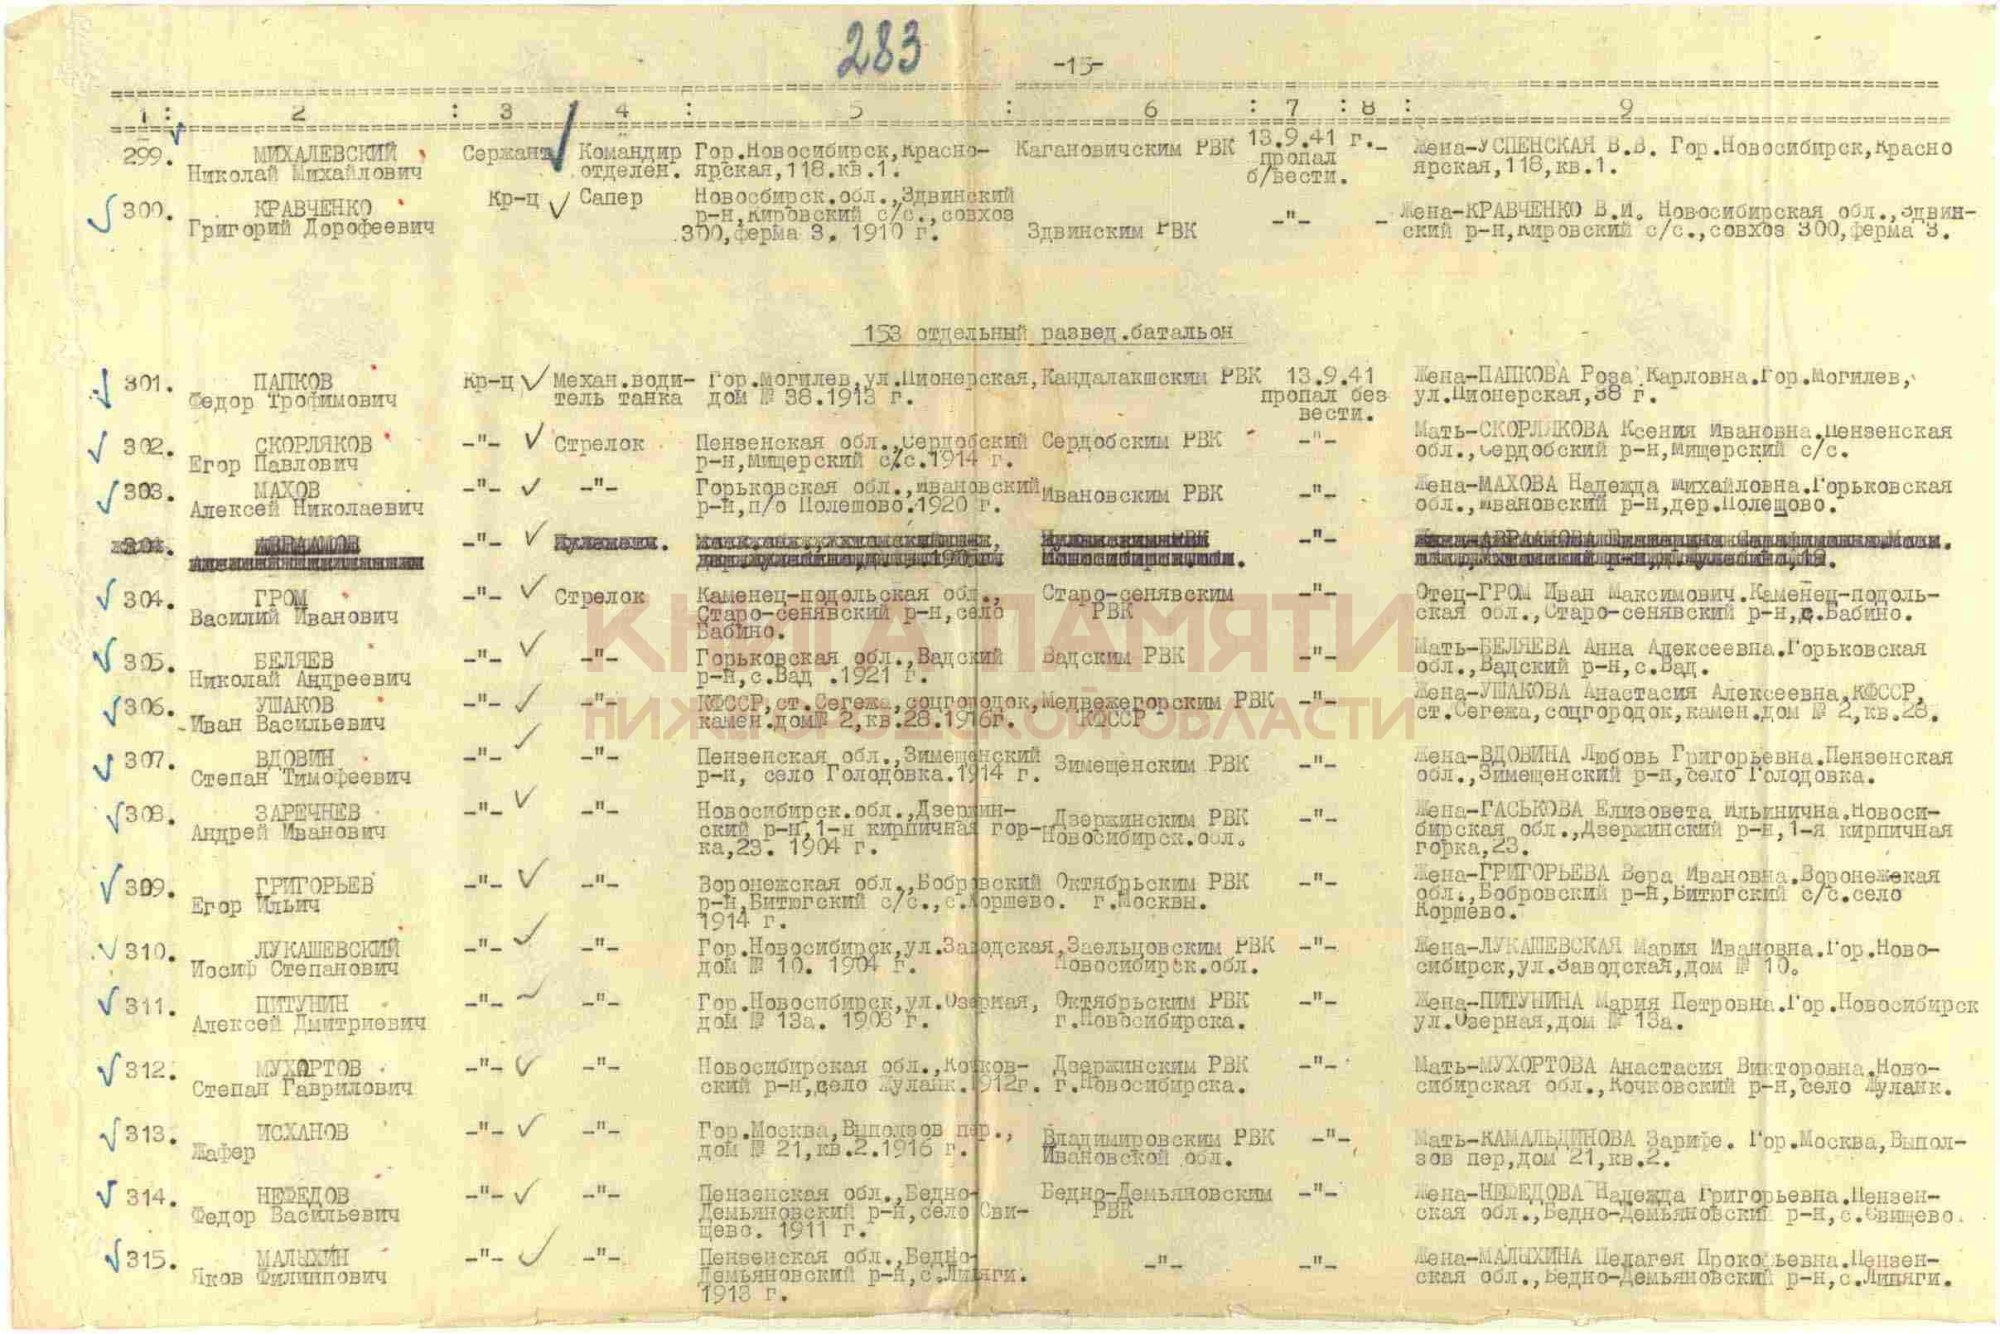 283
-15-
1 : 2 : 3 4 : 5 : 6 : 7 : 8 : 9
299. МИХАЛЕВСКИЙ Сержант Командир Гор.Новосибирск,Красно- Кагановичским РВК 13.9.41 г. - Жена-УСПЕНСКАЯ В.В. Гор.Новосибирск,Красно
Николай Михайлович отделен. ярская,118.кв.1. пропал ярская,118,кв.1.
б/вести.
300. КРАВЧЕНКО Кр-ц Сапер Новосбирск.обл.,Здвинский
Григорий Дорофеевич р-н,Кировский с/с.,совхоз -"- - Жена-КРАВЧЕНКО В.И. Новосибирская обл.,Здвин-
300,ферма 3. 1910 г. Здвинским РВК ский р-н,Кировский с/с.,совхоз 300,ферма 3.
153 отдельный развед.батальон
301. ПАПКОВ Кр-ц Механ.води- Гор.Могилев,ул.Пионерская, Кандалакшским РВК 13.9.41 Жена-ПАПКОВА Роза Карловна.Гор.Могилев,
Федор Трофимович тель танка дом № 38.1913 г. пропал без ул.Пионерская,38 г.
вести.
302. СКОРЛЯКОВ -"- Стрелок Пензенская обл.,Сердобский Сердобским РВК -"- Мать-СКОРЛЯКОВА Ксения Ивановна.Пензенская
Егор Павлович р-н,Мищерский с/с.1914 г. обл.,Сердобский р-н,Мищерский с/с.
303. МАХОВ -"- -"- Горьковская обл.,Ивановский Ивановским РВК -"- Жена-МАХОВА Надежда Михайловна.Горьковская
Алексей Николаевич р-н,п/о Полешово.1920 г. обл.,Ивановский р-н,дер.Полещово.
304. АВРААМОВ -"- -"- Жена-АВРААМОВА
304. ГРОМ -"- Стрелок Каменец-подольская обл., Старо-сенявским -"- Отец-ГРОМ Иван Максимович.Каменец-подоль-
Василий Иванович Старо-сенявский р-н,село РВК ская обл.,Старо-сенявский р-н,с.Бабино.
Бабино.
305. БЕЛЯЕВ -"- -"- Горьковская обл.,Вадский Вадским РВК -"- Мать-БЕЛЯЕВА Анна Алексеевна.Горьковская
Николай Андреевич р-н,с.Вад .1921 г. обл.,Вадский р-н,с.Вад.
306. УШАКОВ -"- -"- КФССР,ст.Сегежа,соцгородок, Медвежегорским РВК -"- Жена-УШАКОВА Анастасия Алексеевна,КФССР,
Иван Васильевич камен.дом№ 2,кв.28.1916г. КФССР ст.Сегежа,соцгородок,камен.дом № 2,кв.28.
307. ВДОВИН -"- -"- Пензенская обл.,Зимещенский Зимещенским РВК -"- Жена-ВДОВИНА Любовь Григорьевна.Пензенская
Степан Тимофеевич р-н, село Голодовка.1914 г. обл.,Зимещенский р-н,село Голодовка.
308. ЗАРЕЧНЕВ -"- -"- Новосибирск.обл.,Дзержин- Дзержинским РВК -"- Жена-ГАСЬКОВА Елизовета Ильинична.Новоси-
Андрей Иванович ский р-н,1-я кирпичная гор- Новосибирск.обл. бирская обл.,Дзержинский р-н,1-я кирпичная
ка,23. 1904 г. горка,23.
309. ГРИГОРЬЕВ -"- -"- Воронежская обл.,Бобровский Октябрьским РВК -"- Жена-ГРИГОРЬЕВА Вера Ивановна.Воронежская
Егор Ильич р-н,Битюгский с/с.,с.Коршево. г.Москвы. обл.,Бобровский р-н,Битюгский с/с.село
1914 г. Коршево.
310. ЛУКАШЕВСКИЙ -"- -"- Гор.Новосибирск,ул.Заводская, Заельцовским РВК -"- Жена-ЛУКАШЕВСКАЯ Мария Ивановна.Гор.Ново-
Иосиф Степанович дом № 10. 1904 г. Новосибирск.обл. сибирск,ул.Заводская,дом № 10.
311. ПИТУНИН -"- -"- Гор.Новосибирск,ул.Озерная, Октябрьским РВК -"- Жена-ПИТУНИНА Мария Петровна.Гор.Новосибирск
Алексей Дмитриевич дом № 13а. 1903 г. г.Новосибирска. ул.Озерная,дом № 13а.
312. МУХОРТОВ -"- -"- Новосибирская обл.,Кочков- Дзержинским РВК -"- Мать-МУХОРТОВА Анастасия Викторовна.Ново-
Степан Гаврилович ский р-н,село Жуланк.1912г. г.Новосибирска. сибирская обл.,Кочковский р-н,село Жуланк.
313. ИСХАНОВ -"- -"- Гор.Москва,Выползов пер., Владимировским РВК -"- Мать-КАМАЛЬДИНОВА Зарифе. Гор.Москва,Выпол-
Жафер дом № 21,кв.2.1916 г. Ивановской обл. зов пер,дом 21,кв.2.
314. НЕФЕДОВ -"- -"- Пензенская обл.,Бедно- Бедно-Демьяновским -"- Жена-НЕФЕДОВА Надежда Григорьевна.Пензен-
Федор Васильевич Демьяновский р-н,село Сви- РВК ская обл.,Бедно-Демьяновский р-н,с.Свищево.
щево. 1911 г.
315. МАЛЫХИН -"- -"- Пензенская обл.,Бедно- -"- -"- Жена-МАЛЫХИНА Пелагея Прокофьевна.Пензен-
Яков Филиппович Демьяновский р-н,с.Липяги. ская обл.,Бедно-Демьяновский р-н,с.Липяги.
1913 г.
КНИГА ПАМЯТИ
НИЖЕГОРОДСКОЙ ОБЛАСТИ